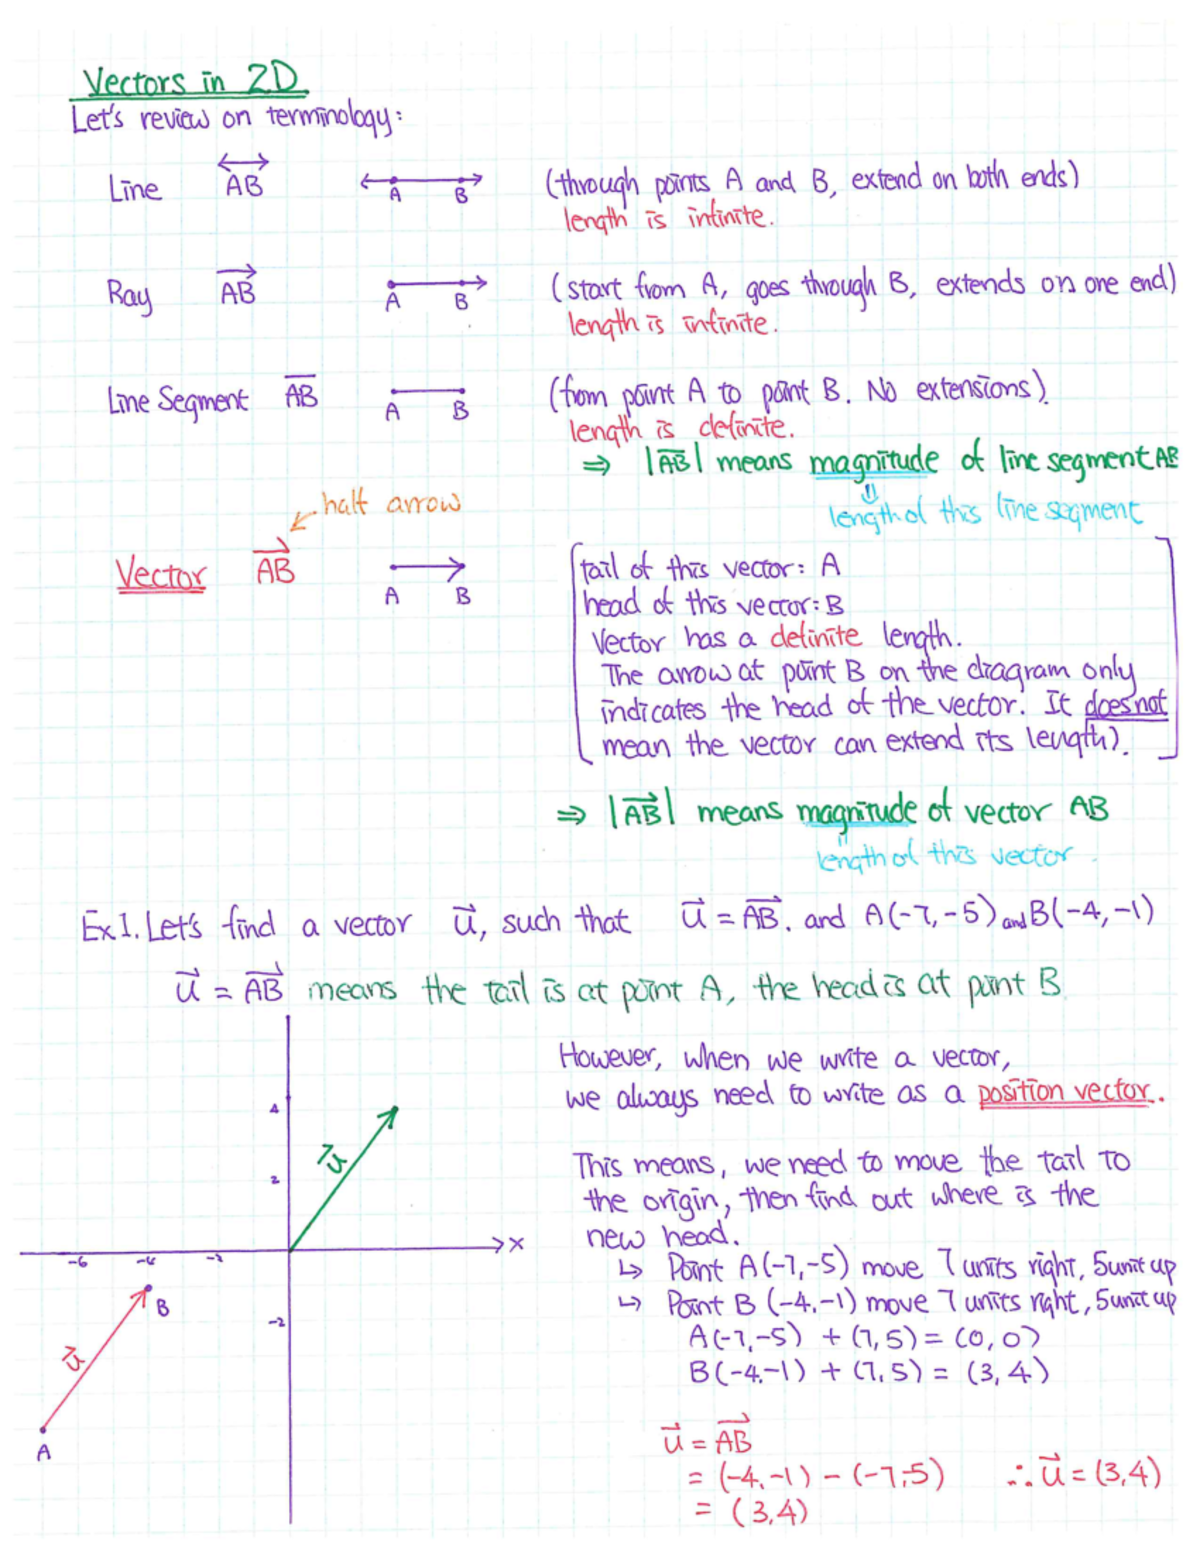 Vectors in 2D
Let's review on terminology:
Line AB A B (through points A and B, extend on both ends)
length is infinite.
Ray AB A B (start from A, goes through B, extends on one end)
length is infinite.
Line Segment AB A B (from point A to point B. No extensions).
length is definite.
⇒ |AB| means magnitude of line segment AB
length of this line segment
half arrow
Vector AB A B
tail of this vector: A
head of this vector: B
Vector has a definite length.
The arrow at point B on the diagram only
indicates the head of the vector. It does not
mean the vector can extend its length).
⇒ |AB| means magnitude of vector AB
length of this vector.
Ex1. Let's find a vector u, such that u = AB. and A(-7,-5) and B(-4,-1)
u = AB means the tail is at point A, the head is at point B.
However, when we write a vector,
we always need to write as a position vector.
This means, we need to move the tail to
the origin, then find out where is the
new head.
↳ Point A(-7,-5) move 7 units right, 5 unit up
↳ Point B (-4,-1) move 7 units right, 5 unit up
A(-7,-5) + (7,5) = (0,0)
B(-4,-1) + (7,5) = (3,4)
u = AB
= (-4,-1) - (-7,-5) ∴ u = (3,4)
= (3,4)
4
u
2
-6 -4 -2 x
B
-2
u
A